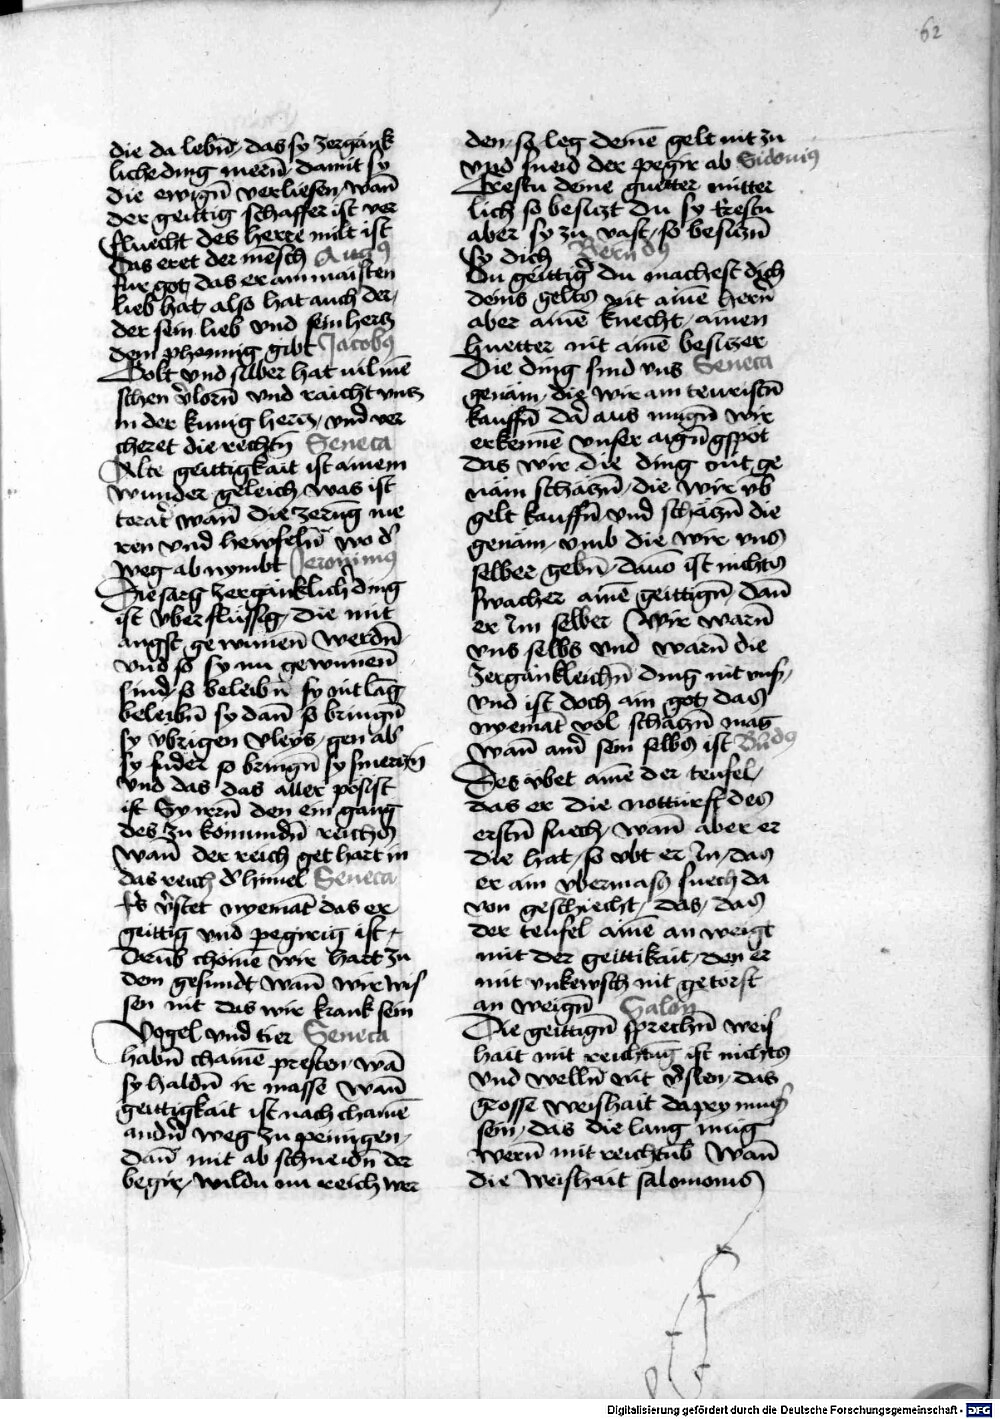 62
die da lebn̄ / das sy zergänk
liche ding mern̄ / damit sy
die ewign̄ verliesen / wan̄
der geittig schaffer ist ver
fluecht des herre milt ist
Das eret der mēsch Augꝰ
fur got / das er am maisten
lieb hat / also hat auch der /
der sein lieb vnd sein hertz
dem phennig gibt Jacobꝰ
Golt vnd silber hat vil mē
schen v̄lorn̄ vnd raicht vntz
in der kunig hertz / vnd ver
cheret die rechtn̄ Seneca
Alte geittigkait ist ainem
wunder geleich / was ist
torat̄ wan̄ die zerūg me
ren vnd hewfeln̄ wo d̄
weg ab nymbt Jeronimꝰ
Die sarg zergänklich̄ ding
ist vberflüssig / die mit
angst gewunen̄ werdn̄
vnd so sy nu gewunen̄
sind / so beleibn̄ sy nit lāg
beleibn̄ sy dan̄ so bringn̄
sy vbrigen vleys / gen ab̄
sy fuder so bringn̄ sy smertzn̄
vnd das das aller pösist
ist Sy irrn̄ den ein gang
des zu kömundn̄ reichs
wan̄ der reich get hart in
das reich d̄ himel Seneca
Es v̄stet nyemāt das er
geittig vnd pegirig ist /
Darūb chömē wir hart zu
dem gesundt wan̄ wir wis
sen nit das wir krank sein
Vogel vnd tier Seneca
habn̄ chainē presten / wā
sy haldn̄ ir masse wan̄
geittigkait ist nach chainē
andn̄ weg zu peinigen /
dan̄ mit ab schneidn̄ der
begir / wildu nu reich wer
den / so leg deinē gelt nit zu
vnd sneid der pegir ab Sidoniꝰ
Trestu deine guetter mitter
lich so besizt du sy trestu
aber sy zu vast / so besizn̄
sy dich Bern̄dꝰ
Du geittiḡ du machest dich
deins gelts nit ainē hern̄
aber ainē knecht / ainen
huetter nit ainē besizer
Die ding sind vns Seneca
genäm / die wir am teuristn̄
kauffn̄ da aus mugn̄ wir
erkennē vnser aign̄ gspöt
das wir die ding nit ge
näm schäzn̄ / die wir vb
gelt kauffn̄ vnd schäzn̄ die
genäm / vmb die wir vns
selber gebn̄ / dauō ist nichts
swacher ainē geittign̄ / dan̄
er Im selber Wir warn̄
vns selbs vnd warn̄ die
zergankleichn̄ ding nit vnß /
vnd ist doch ain got / das
nyemāt vol schäzn̄ mag
wan̄ am̄ sein selbs ist Bēdꝰ
Des v̈bet ainē der teufel /
das er die notturft des
erstn̄ suech / wan̄ aber er
die hat / so vbt er In / das
er ain vbermass suech da
von geschiecht / das / das
der teufel ainē an weigt
mit der geittikait / den er
mit vnkewsch nit getorst
an weign̄ Salon̄
Die geittign̄ sprechn̄ weis
hait mit reichtūg ist nichts
vnd welln̄ nit v̄sten / das
grosse weishait dapey mueß
sein / das die lang mug
wern̄ mit reichtūb Wan̄
die weishait salomonis
Digitalisierung gefördert durch die Deutsche Forschungsgemeinschaft - DFG